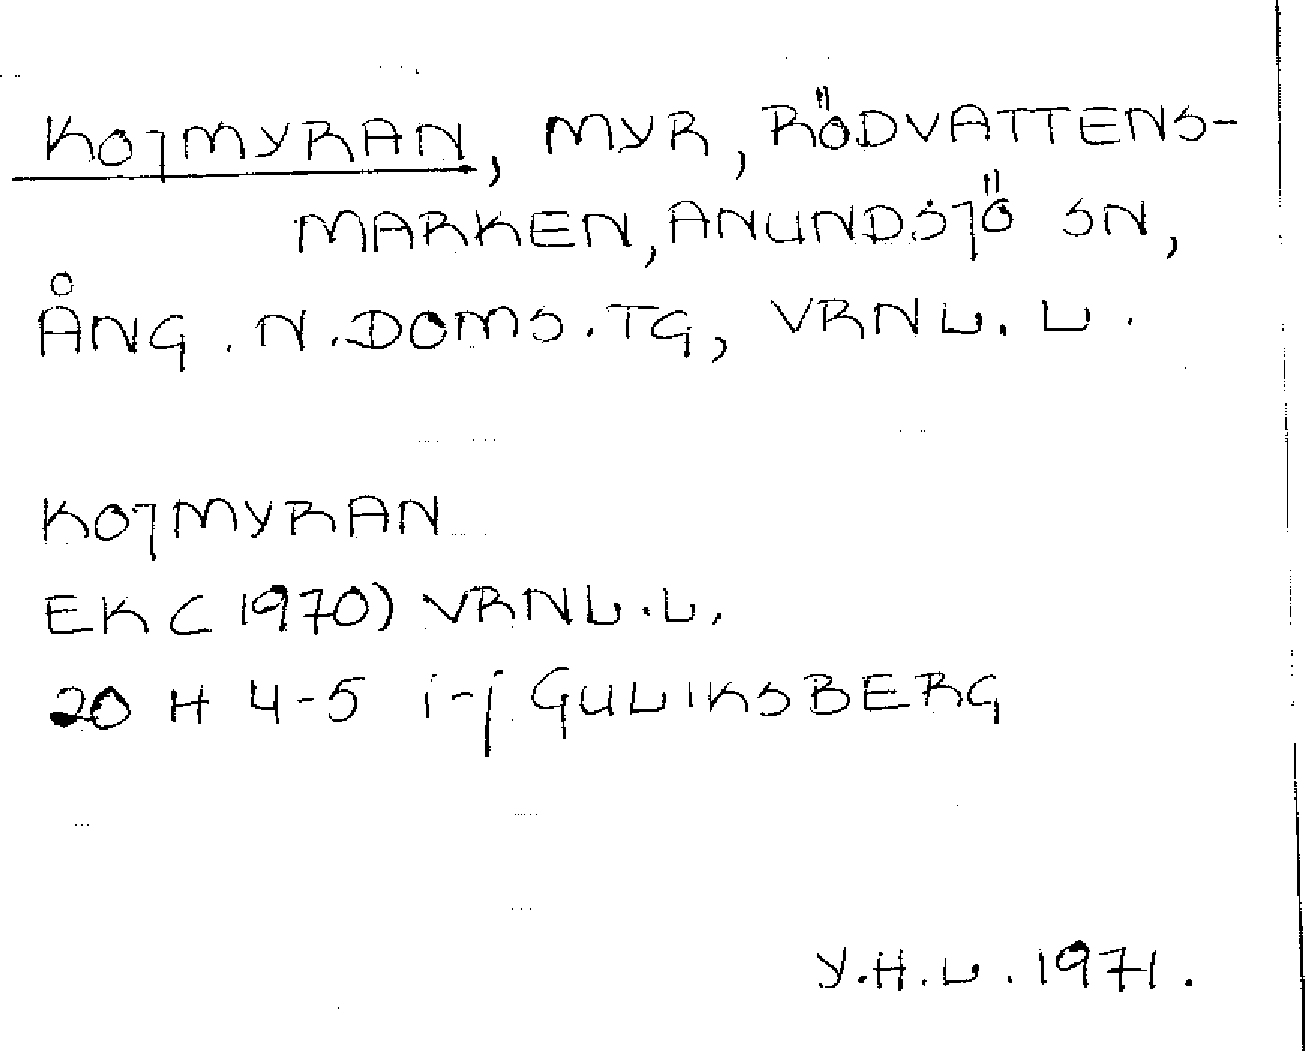 KOJMYRAN, MYR, RÖDVATTENS-
MARKEN, ANUNDSJÖ SN,
ÅNG. N. DOMS. TG, VRNL. L.
KOJMYRAN
EK (1970) VRNL. L.
20 H 4-5 i-j GULIKSBERG
Y.H.L. 1971.